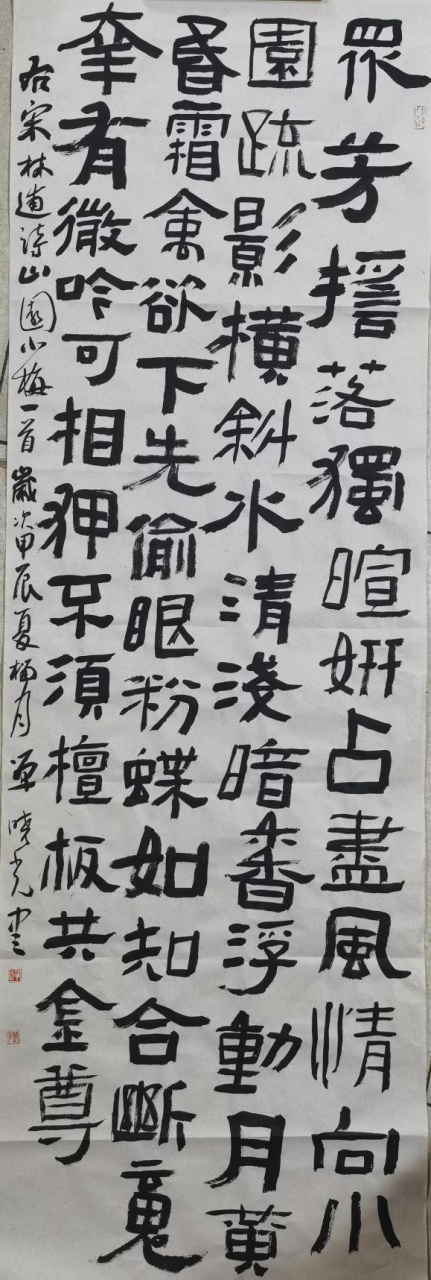 眾芳搖落獨暄妍占盡風情向小
園疏影橫斜水清淺暗香浮動月黃
昏霜禽欲下先偷眼粉蝶如知合斷魂
幸有微吟可相狎不須檀板共金尊
右宋林逋詩山園小梅一首歲次甲辰夏月曉光書